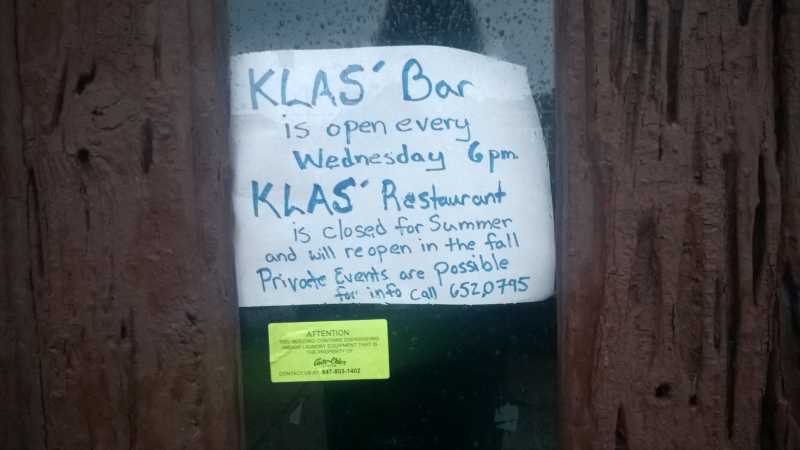 KLAS' Bar
is open every
Wednesday 6pm
KLAS' Restaurant
is closed for Summer
and will reopen in the fall
Private Events are possible
for info call 652,0795
ATTENTION
THIS BUILDING CONTAINS DISHWASHING
AND/OR LAUNDRY EQUIPMENT THAT IS
THE PROPERTY OF
CONTACT US AT: 847-803-1402